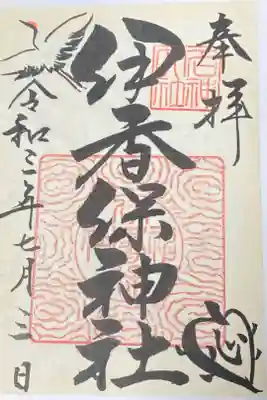 奉拝
伊香保神社
令和三年七月三日